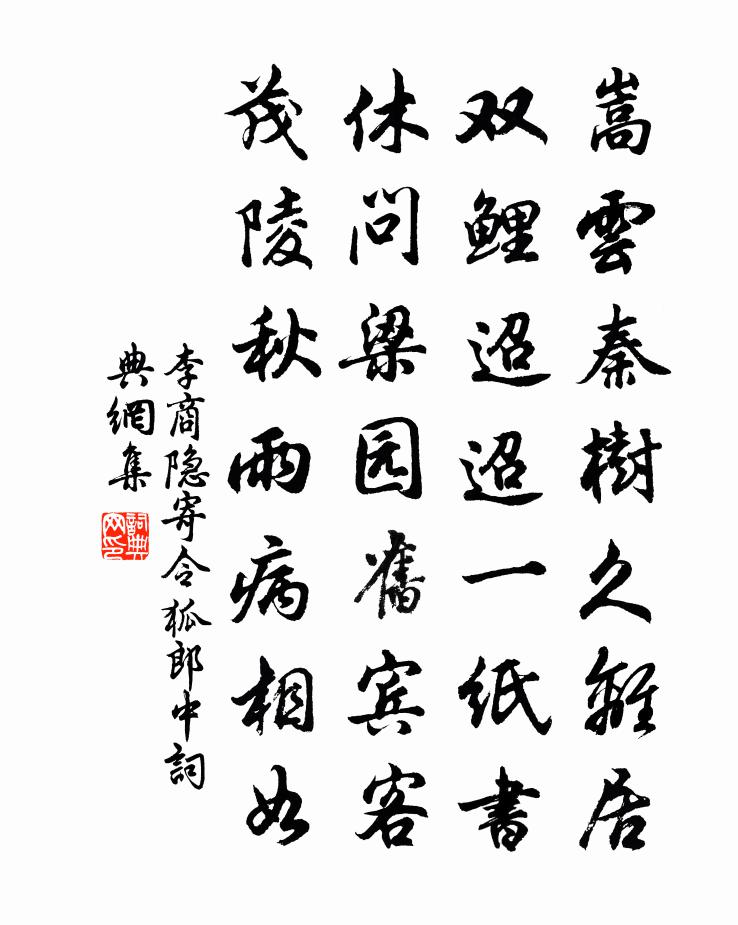 嵩雲秦樹久離居
双鯉迢迢一纸書
休问梁园舊宾客
茂陵秋雨病相如
李商隐寄令狐郎中詞
典網集
詞典网印